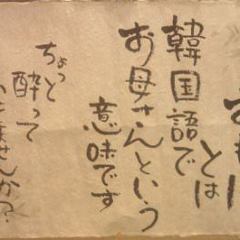 とは
韓国語で
お母さんという
意味です
ちょっと
酔って
ませんか?